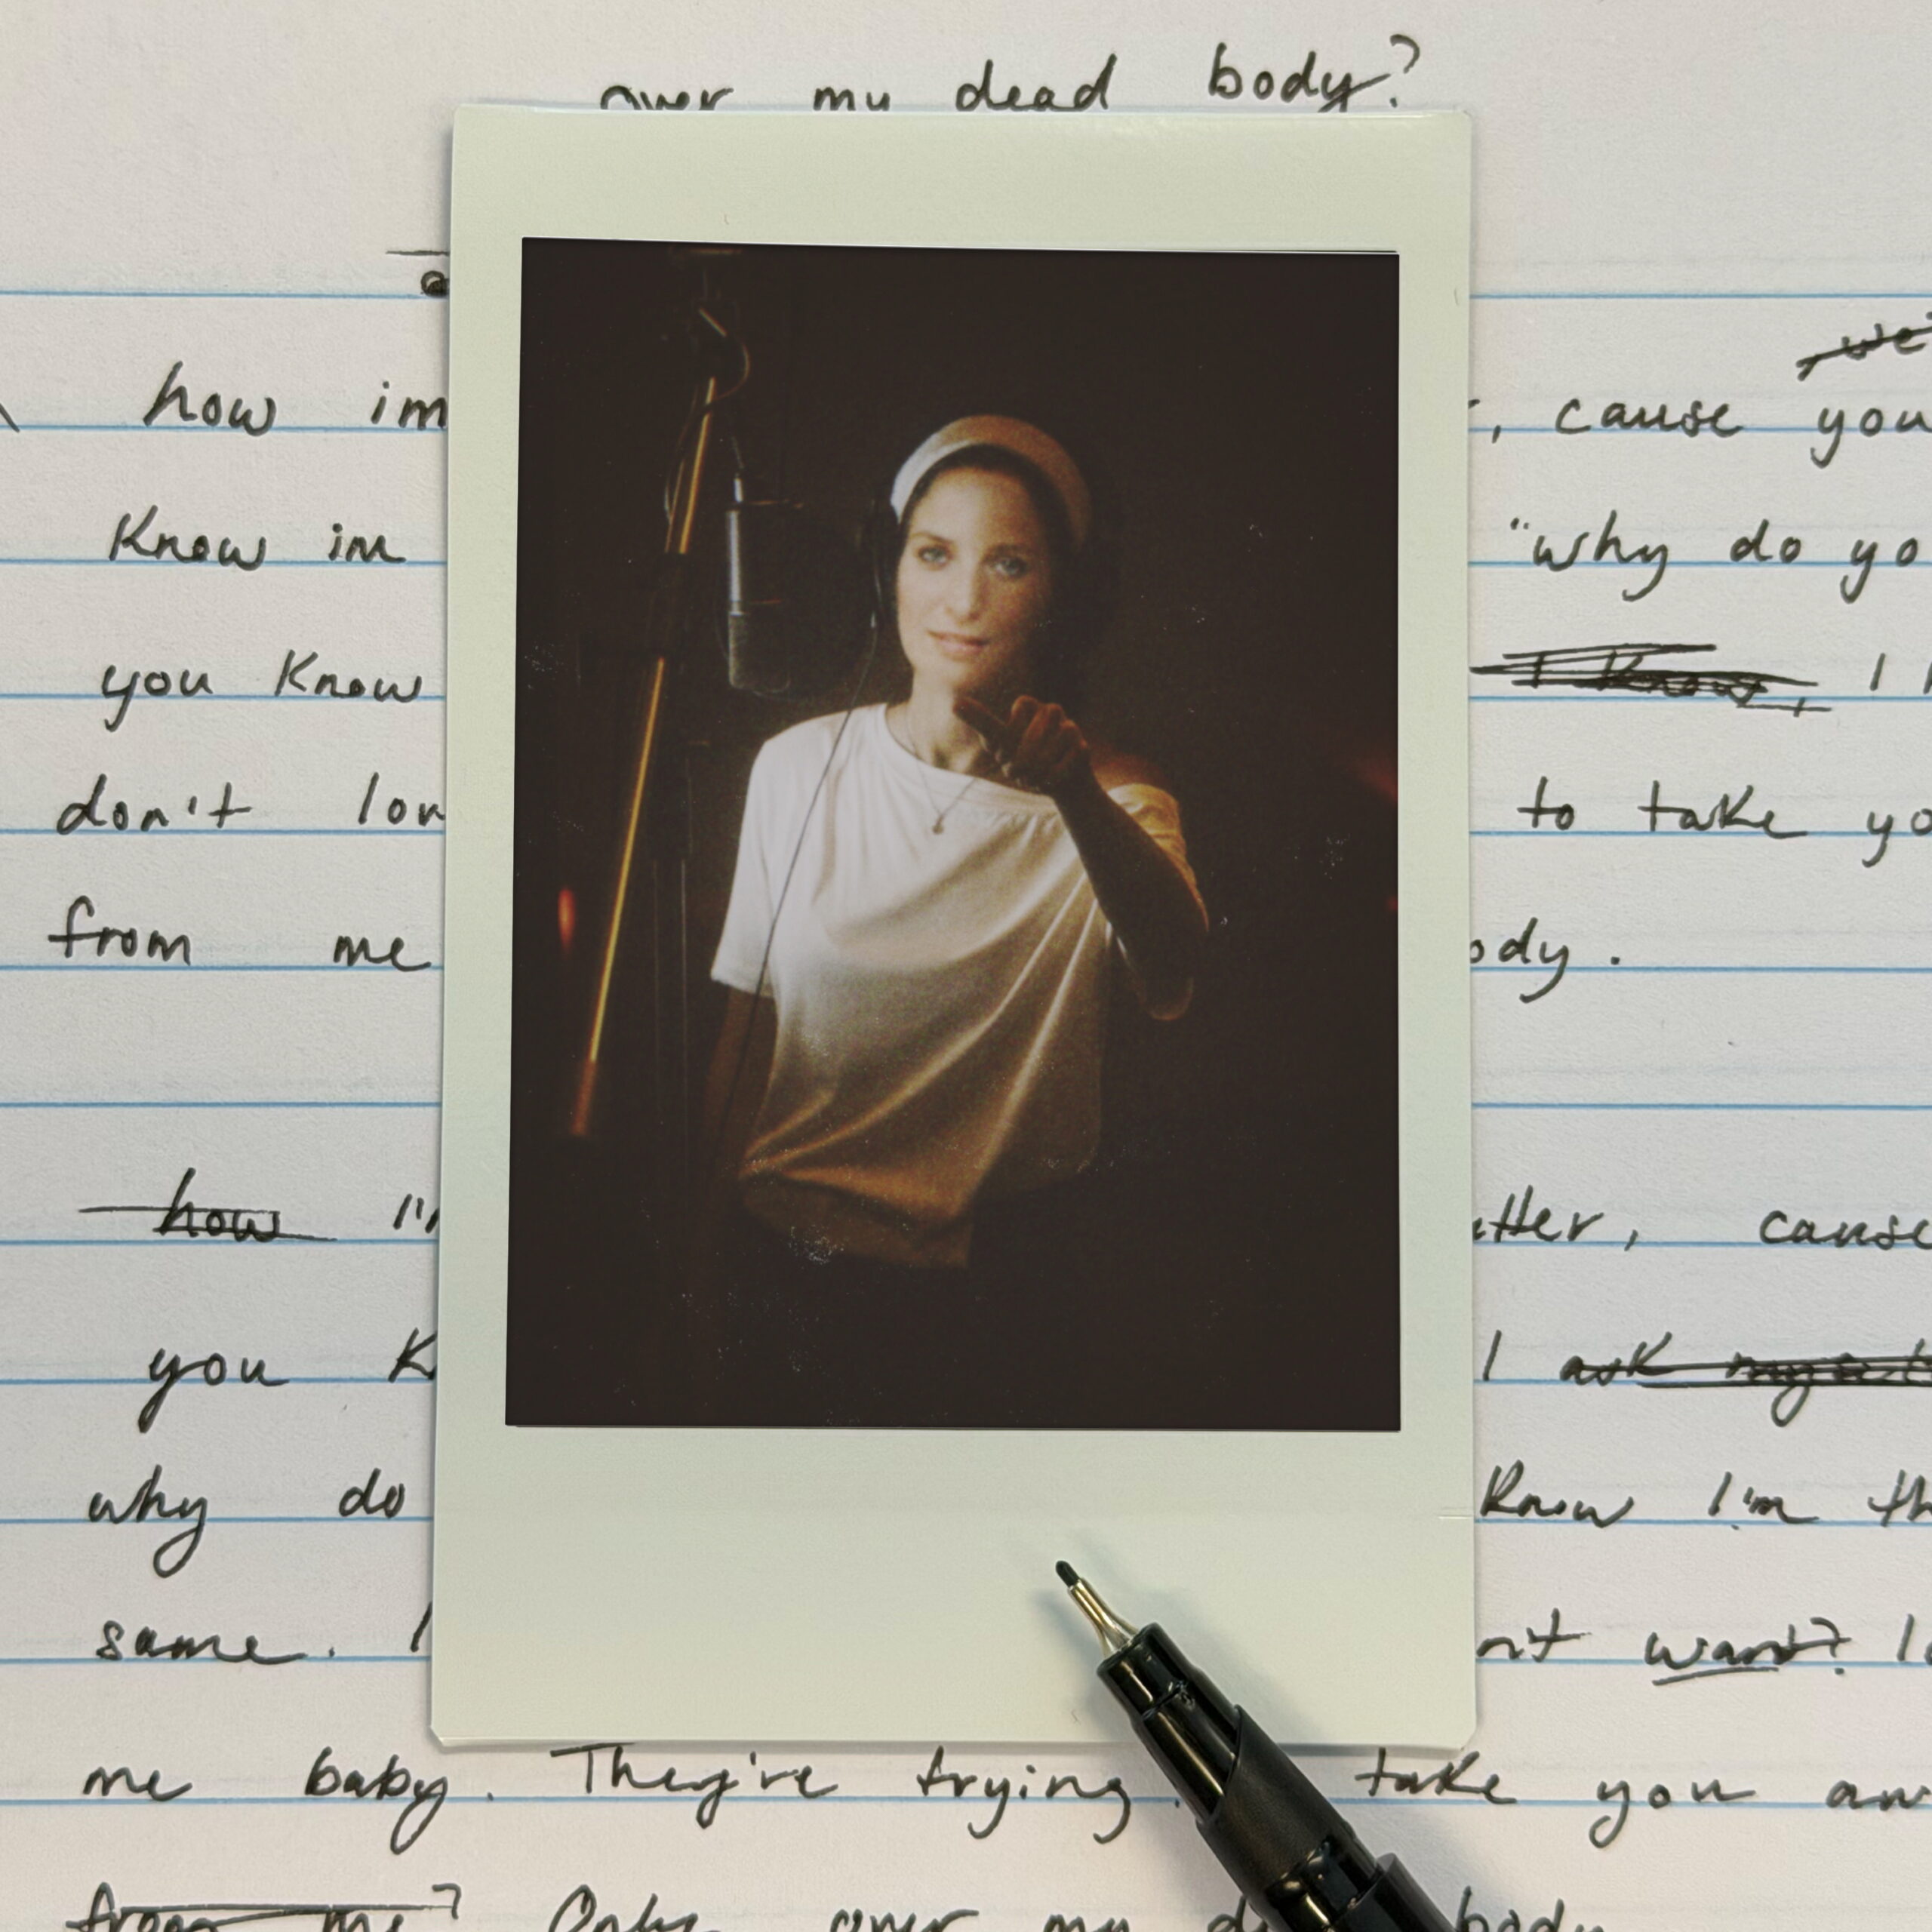 over my dead body?
how im , cause you
Know im "why do yo
you Know I Know, I
don't lov to take yo
from me ody.
how I'm tter, cause
you K I ask myself
why do Know I'm th
same. I n't want? I
me baby. They're trying take you aw
from me? Only over my d body